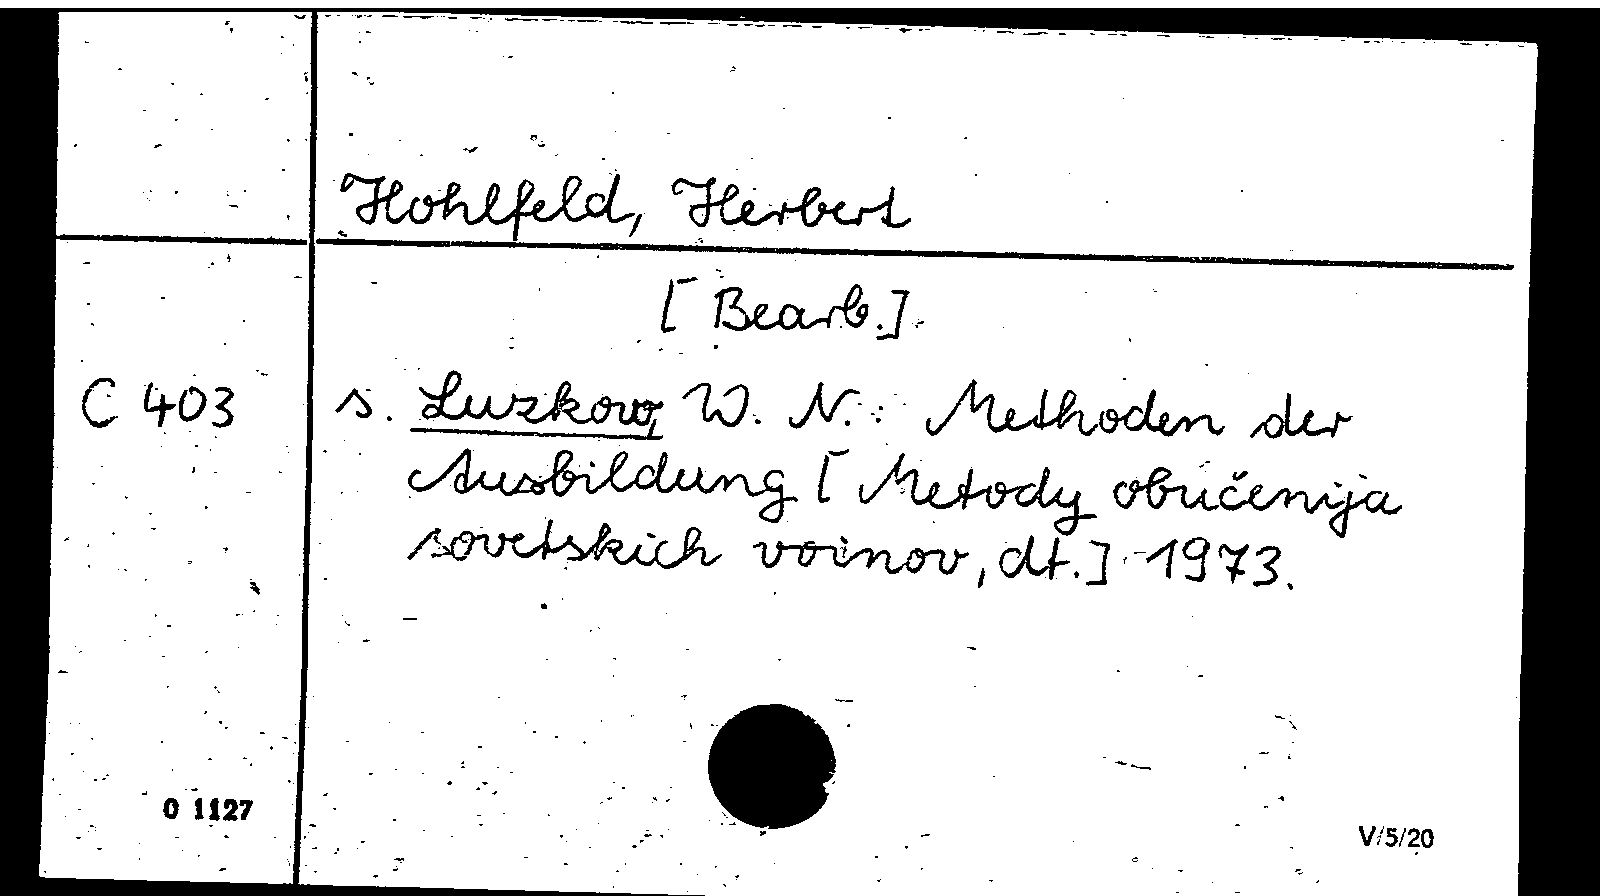 Hohlfeld, Herbert
[Bearb.]
C 403 s. Luzkow, W. N.: Methoden der
Ausbildung [Metody obučenija
sovetskich voinov, dt.] 1973.
0 1127
V/5/20